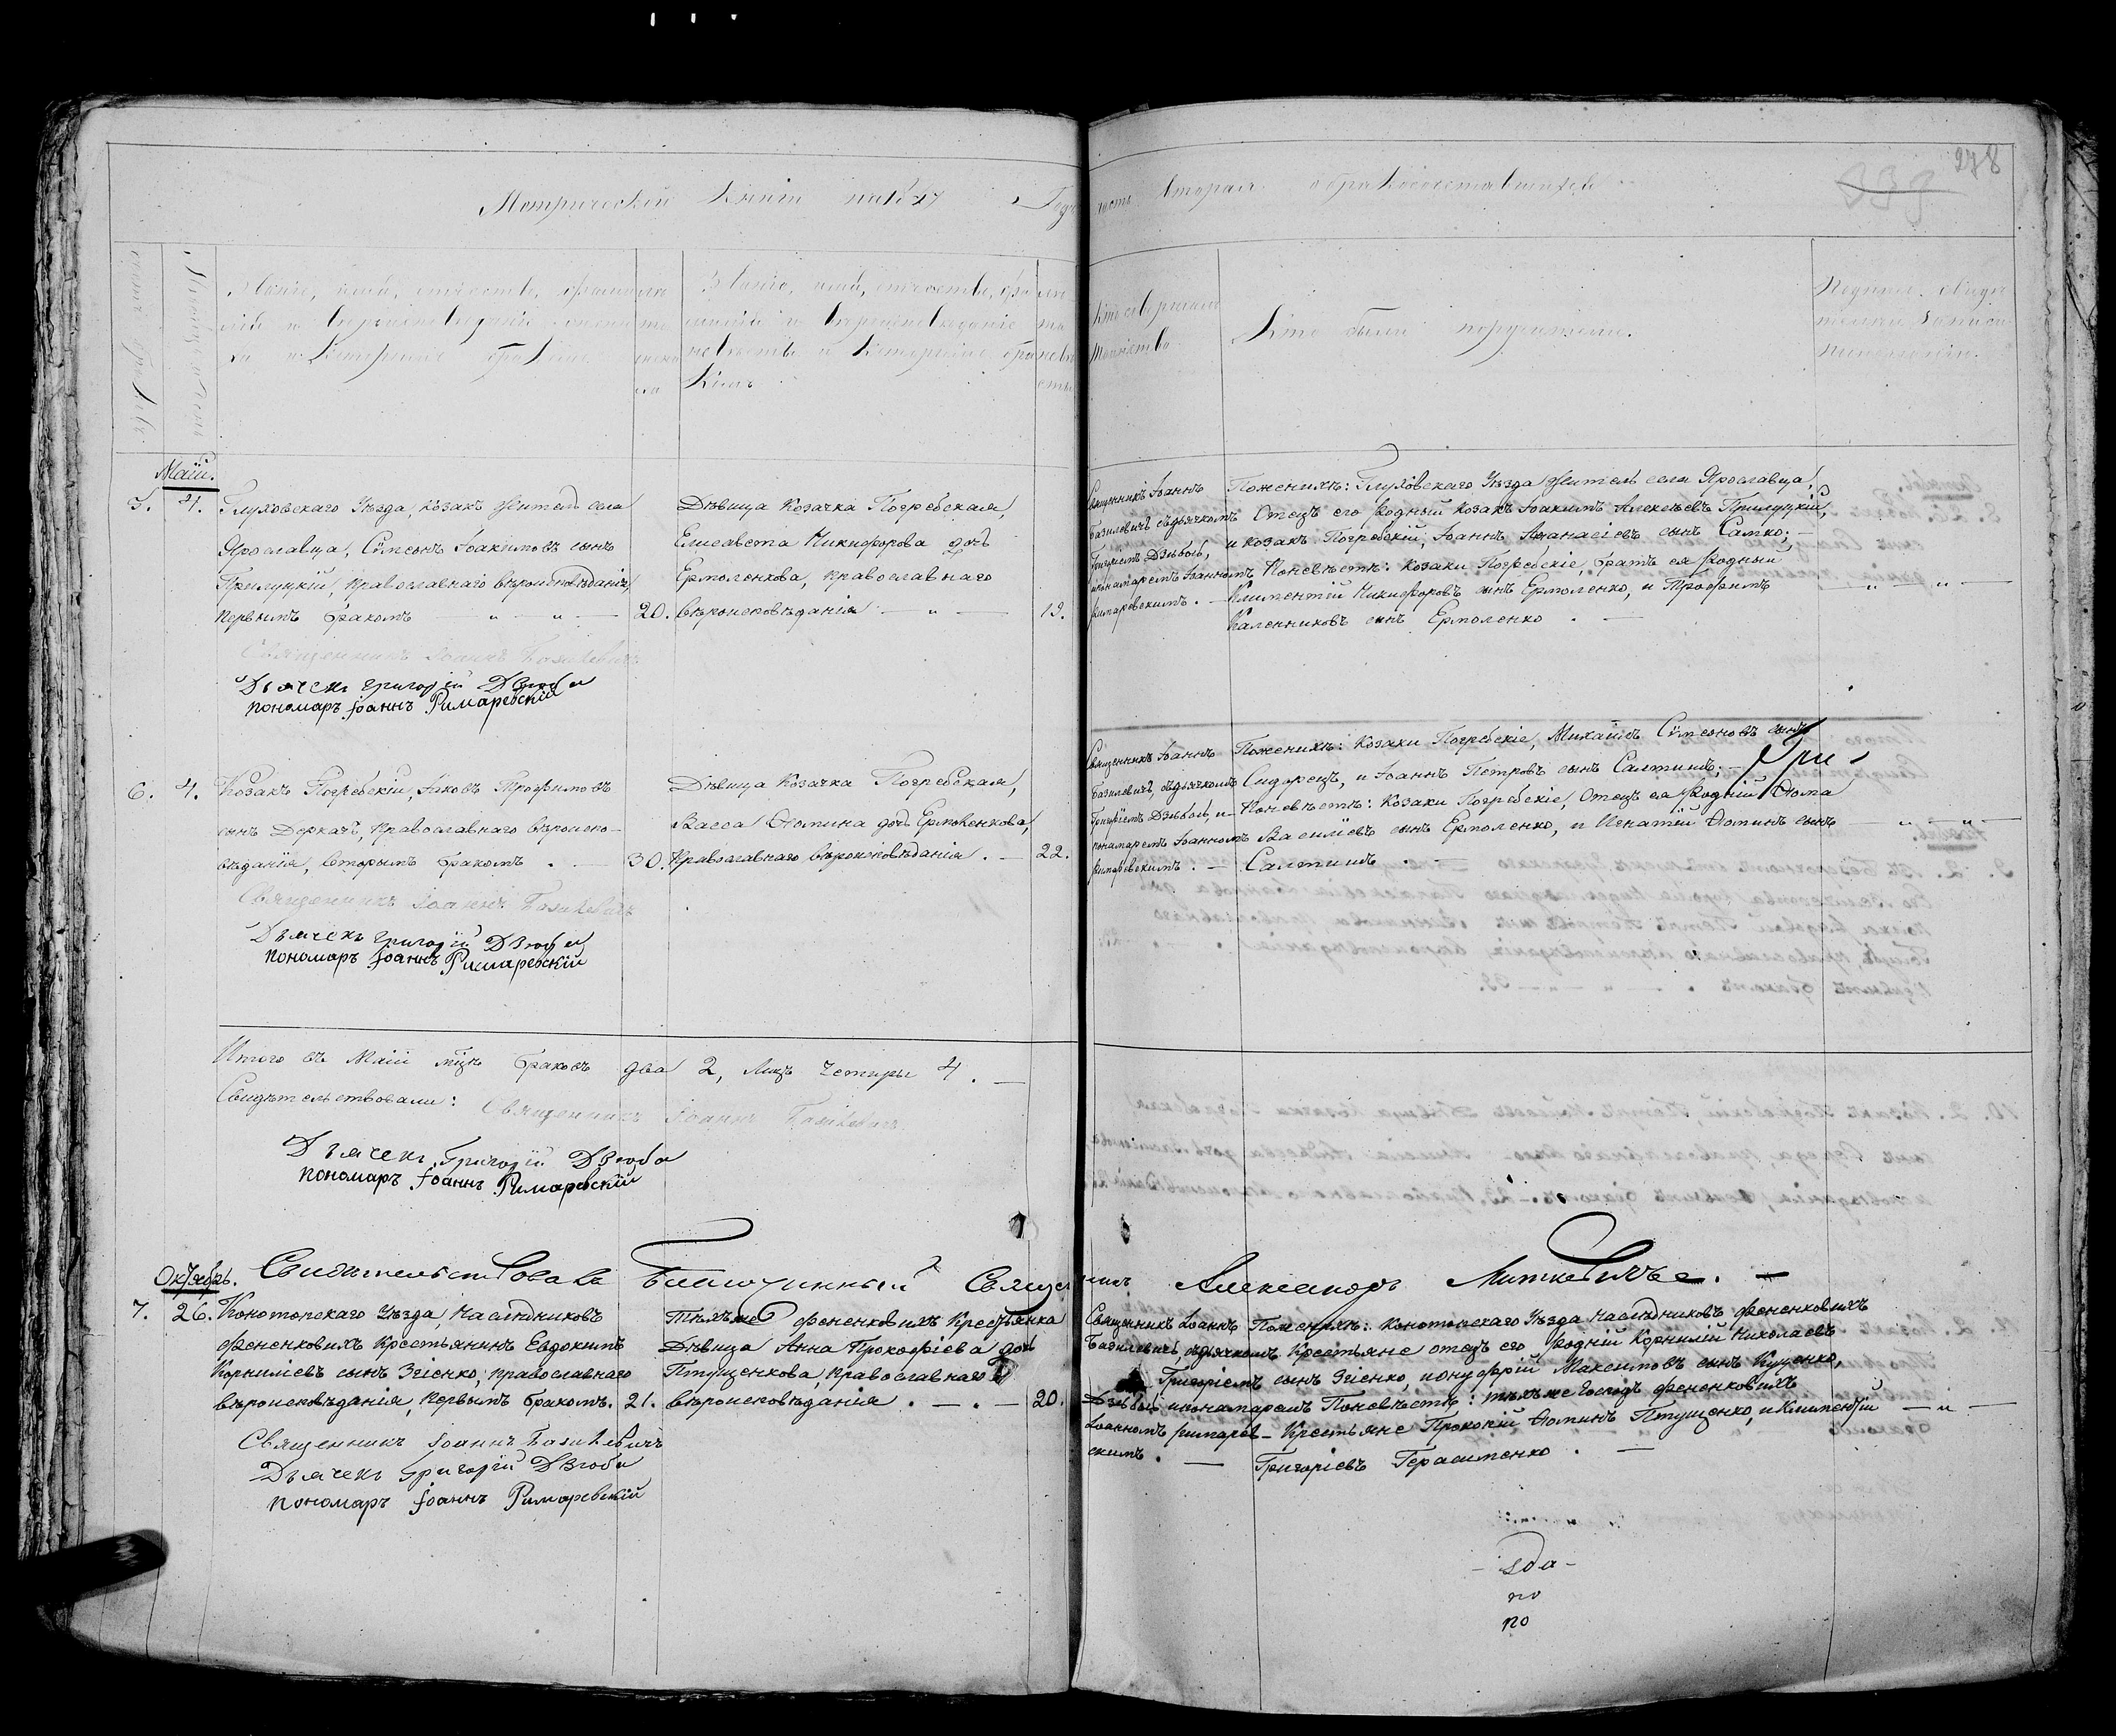 Метрической книги на 1847 Годъ
часть вторая о бракосочетавшихся
278
339
Званіе, имя, отчество, фамилія и вѣроисповѣданіе жениха и которымъ бракомъ
Званіе, имя, отчество, фамилія и вѣроисповѣданіе невѣсты и которымъ бракомъ
Кто совершалъ таинство
Кто были поручители.
Маій.
5. 4. Глуховскаго Уѣзда, козакъ житель села
Ярославца, Сѷмеонъ Іоакимовъ сынъ
Прилуцкій, православнаго вѣроисповѣданія,
первымъ бракомъ — „ — „ — 20.
Дѣвица Козачка Погребская,
Елисавета Никифорова дочь
Ермоленкова, православнаго
вѣроисповѣданія — „ — 19.
Священникъ Іоаннъ
Базилевичъ, съ дьячкомъ
Григоріемъ Дзюбою,
и понамаремъ Іоанномъ
Римаревскимъ. —
По женихѣ: Глуховскаго Уѣзда житель села Ярославца,
Отецъ его родный козакъ Іоакимъ Алексѣевъ Прилуцкій,
и козакъ Погребскій, Іоаннъ Аѳанасіевъ сынъ Сапко; —
По невѣстѣ: козаки Погребскіе, братъ ея родный
Климентій Никифоровъ сынъ Ермоленко, и Трофимъ
Каленниковъ сынъ Ермоленко . —
Священникъ Іоаннъ Базилевичъ
Дьячекъ Григорій Дзюба
пономаръ Іоаннъ Римаревскій
6. 4. Козакъ Погребскій, Іаковъ Трофимовъ
сынъ Деркачъ, православнаго вѣроиспо-
вѣданія, вторымъ бракомъ . — 30.
Дѣвица Козачка Погребская,
Васса Ѳомина дочь Ермоленкова,
православнаго вѣроисповѣданія . — 22.
Священникъ Іоаннъ
Базилевичъ, съ дьячкомъ
Григоріемъ Дзюбою, и
понамаремъ Іоанномъ
Римаревскимъ . —
По женихѣ: Козаки Погребскіе, Михаилъ Сѷмеоновъ сынъ
Сидорецъ, и Іоаннъ Петровъ сынъ Салтишъ; —
По невѣстѣ: Козаки Погребскіе, Отецъ ея родній Ѳома
Василіевъ сынъ Ермоленко, и Игнатій Ѳоминъ сынъ
Салтишъ . —
Священникъ Іоаннъ Базилевичъ
Дьячекъ Григорій Дзюба
пономаръ Іоаннъ Римаревскій
Итого въ Маіи мцѣ браковъ два 2, лицъ четыри 4 . —
Свидѣтельствовали: Священникъ Іоаннъ Базилевичъ
Дьячекъ Григорій Дзюба
пономаръ Іоаннъ Римаревскій
Свидѣтельствовалъ Благочинный Священникъ Александръ Миткевичъ. —
Октябрь.
7. 26. Конотопскаго Уѣзда, наслѣдниковъ
Фененковыхъ крестьянинъ Евдокимъ
Корниліевъ сынъ Згіенко, православнаго
вѣроисповѣданія, первымъ бракомъ. 21.
Тѣхъ же Фененковыхъ крестьянка
Дѣвица Анна Прокофіева дочь
Птущенкова, православнаго
вѣроисповѣданія . — . — 20.
Священникъ Іоаннъ
Базилевичъ, съ дьячкомъ
Григоріемъ
Дзюбою, и понамаремъ
Іоанномъ Римарев-
скимъ . —
По женихѣ: Конотопскаго Уѣзда, наслѣдниковъ Фененковыхъ
Крестьяне отецъ его родній Корнилій Николаевъ
сынъ Згіенко, и Онуфрій Максимовъ сынъ Куценко,
По невѣстѣ: тѣхъ же Господъ Фененковыхъ
Крестьяне Прокопій Ѳоминъ Птущенко, и Климентій
Григоріевъ Герасименко . —
Священникъ Іоаннъ Базилевичъ
Дьячекъ Григорій Дзюба
пономаръ Іоаннъ Римаревскій